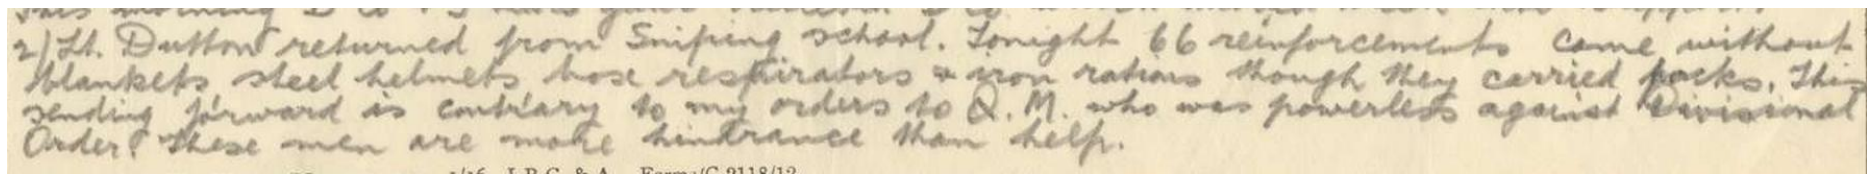 this morning
2/Lt. Dutton returned from Sniping school. Tonight 66 reinforcements came without
blankets steel helmets box respirators & iron rations though they carried packs. This
sending forward is contrary to my orders to Q.M. who was powerless against Divisional
Order. These men are more hindrance than help.
J.B.C. & A. Forms/C.2118/12